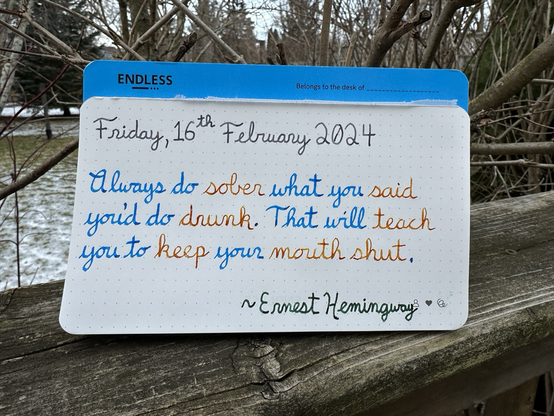 ENDLESS
Belongs to the desk of
Friday, 16th February 2024
Always do sober what you said
you'd do drunk. That will teach
you to keep your mouth shut.
~ Ernest Hemingway